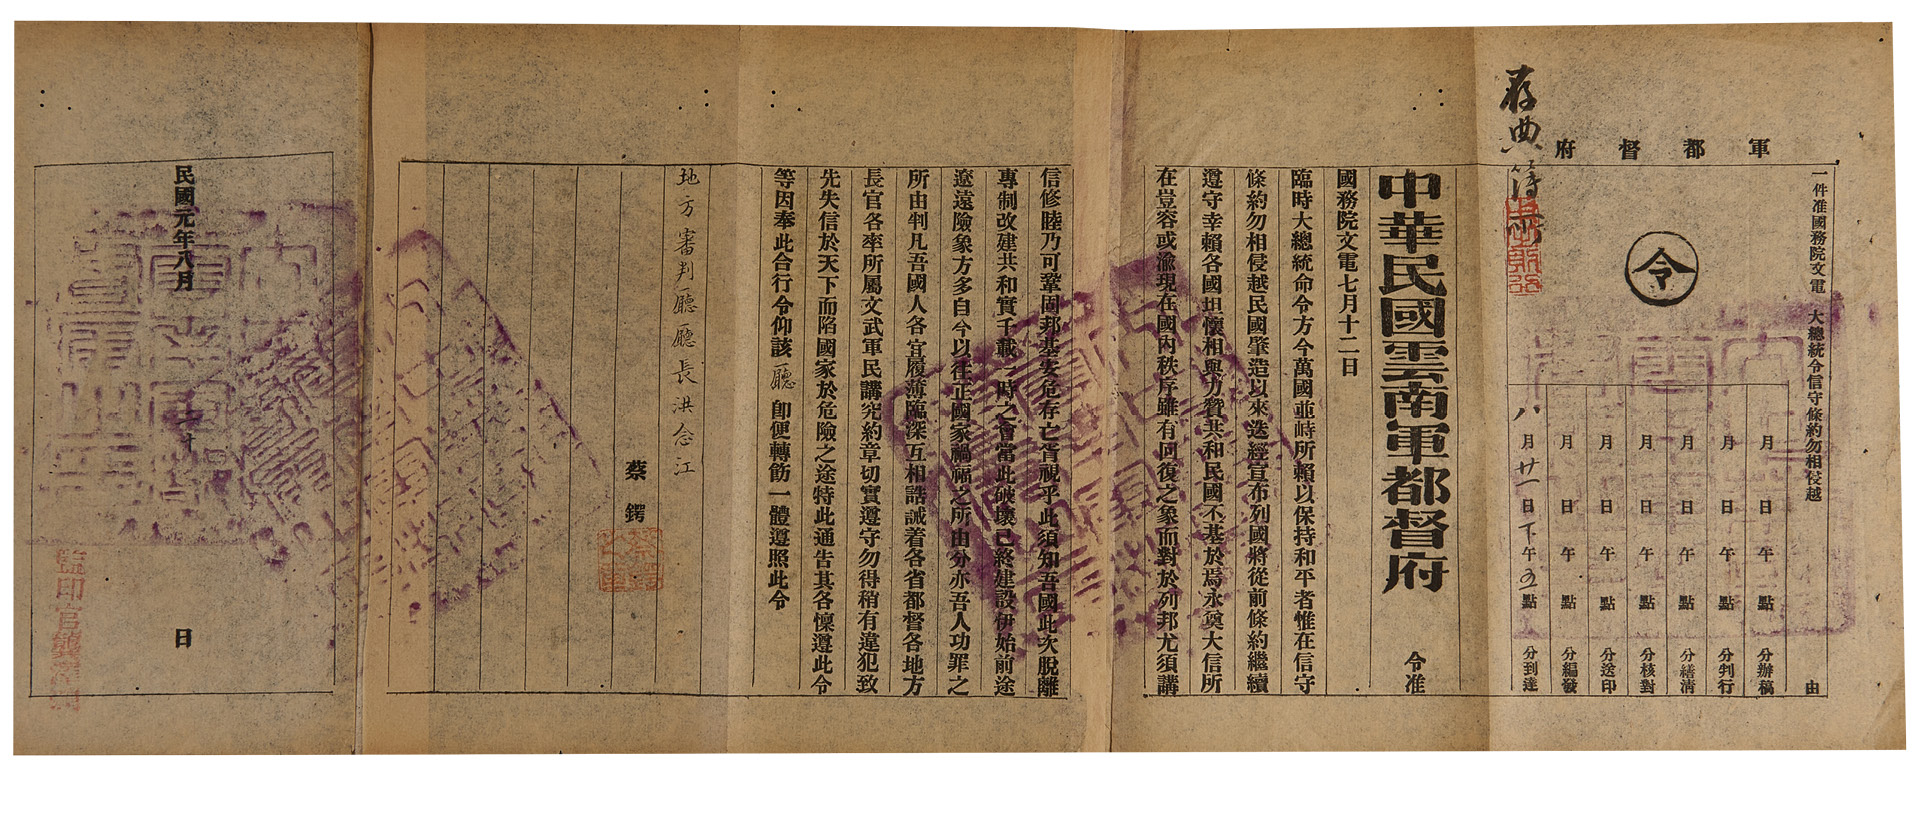 軍都督府
一件准國務院文電 大總統令信守條約勿相侵越 由
令
存典簿所
月 日 午 點 分辦稿
月 日 午 點 分判行
月 日 午 點 分繕清
月 日 午 點 分核對
月 日 午 點 分送印
月 日 午 點 分編發
八月廿一日下午五點 分到達
中華民國雲南軍都督府 令准
國務院文電七月十二日
臨時大總統命令方今萬國並峙所賴以保持和平者惟在信守
條約勿相侵越民國肇造以來迭經宣布列國將從前條約繼續
遵守幸賴各國坦懷相與力贊共和民國丕基於焉永奠大信所
在豈容或渝現在國內秩序雖有回復之象而對於列邦尤須講
信修睦乃可鞏固邦基安危存亡胥視乎此須知吾國此次脫離
專制改建共和實千載一時之會當此破壞已終建設伊始前途
遼遠險象方多自今以往正國家禍福之所由分亦吾人功罪之
所由判凡吾國人各宜履薄臨深互相誥誡着各省都督各地方
長官各率所屬文武軍民講究約章切實遵守勿得稍有違犯致
先失信於天下而陷國家於危險之途特此通告其各懍遵此令
等因奉此合行令仰該廳即便轉飭一體遵照此令
地方審判廳廳長洪念江
蔡鍔
蔡鍔之章
民國元年八月 日
監印官龔